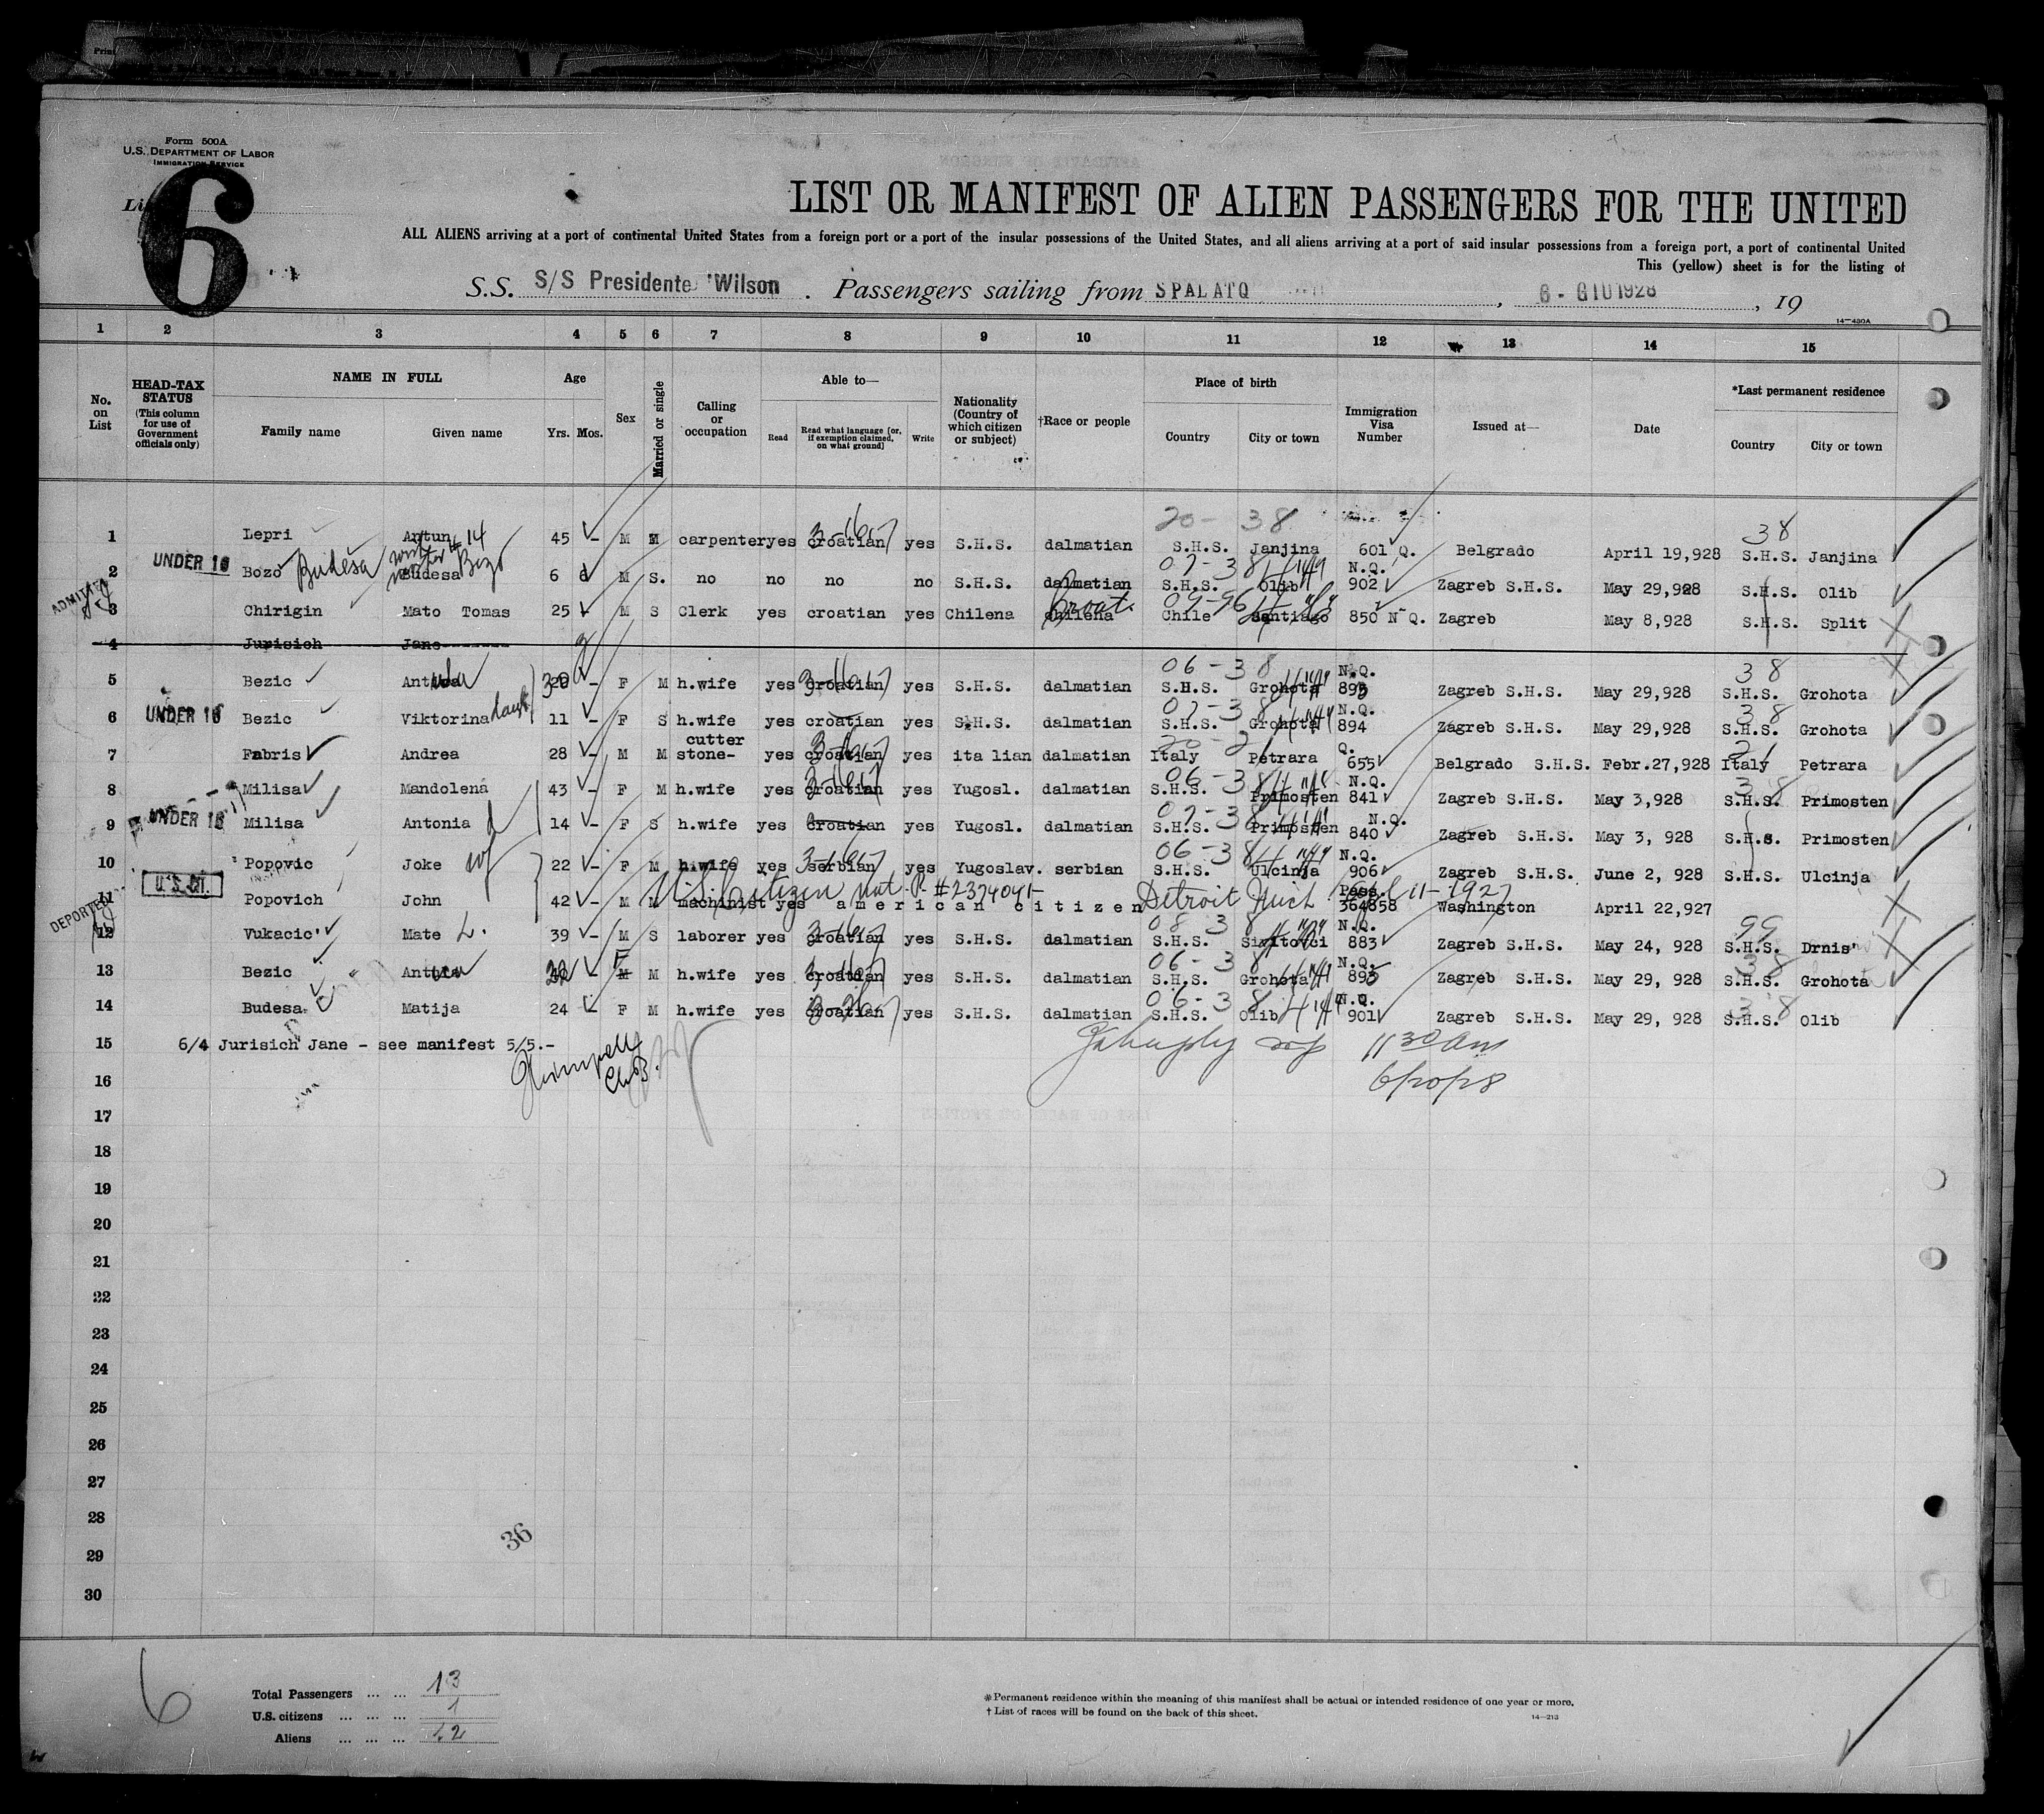 Form 500A
U.S. DEPARTMENT OF LABOR
IMMIGRATION SERVICE
6
LIST OR MANIFEST OF ALIEN PASSENGERS FOR THE UNITED
ALL ALIENS arriving at a port of continental United States from a foreign port or a port of the insular possessions of the United States, and all aliens arriving at a port of said insular possessions from a foreign port, a port of continental United
This (yellow) sheet is for the listing of
S.S. S/S Presidente Wilson. Passengers sailing from SPALATO, 6 - GIU 1928, 19
14-430A
1 2 3 4 5 6 7 8 9 10 11 12 13 14 15
No. on List
HEAD-TAX STATUS (This column for use of Government officials only)
NAME IN FULL Family name Given name
Age Yrs. Mos.
Sex
Married or single
Calling or occupation
Able to— Read Read what language [or, if exemption claimed, on what ground] Write
Nationality (Country of which citizen or subject)
†Race or people
Place of birth Country City or town
Immigration Visa Number
Issued at—
Date
*Last permanent residence Country City or town
20 - 38 38
1 Lepri Antun 45 – M M carpenter yes croatian yes S.H.S. dalmatian S.H.S. Janjina 601 Q. Belgrado April 19,928 S.H.S. Janjina
2 UNDER 16 Bozo Budesa Budesa Bozo 6 6 M S. no no no no S.H.S. dalmatian S.H.S. Olib N.Q. 902 Zagreb S.H.S. May 29,928 S.H.S. Olib
ADMITTED
3 Chirigin Mato Tomas 25 M S Clerk yes croatian yes Chilena chilena Croat. Chile santiago 850 N Q. Zagreb May 8,928 S.H.S. Split
4 Jurisich Jane-------
06 - 38 38
5 Bezic F M h.wife yes croatian yes S.H.S. dalmatian S.H.S. Grohota N.Q. 893 Zagreb S.H.S. May 29,928 S.H.S. Grohota
6 UNDER 16 Bezic Viktorina 11 – F S h.wife yes croatian yes S.H.S. dalmatian S.H.S. Grohota N.Q. 894 Zagreb S.H.S. May 29,928 S.H.S. Grohota
7 Fabris Andrea 28 – M M stone- cutter yes croatian yes ita lian dalmatian Italy Petrara Q. 655 Belgrado S.H.S. Febr.27,928 Italy Petrara
8 Milisa Mandolena 43 – F M h.wife yes croatian yes Yugosl. dalmatian S.H.S. Primosten N.Q. 841 Zagreb S.H.S. May 3,928 S.H.S. Primosten
9 UNDER 16 Milisa Antonia 14 – F S h.wife yes croatian yes Yugosl. dalmatian S.H.S. Primosten N.Q. 840 Zagreb S.H.S. May 3, 928 S.H.S. Primosten
10 Popovic Joke wf 22 – F M h.wife yes serbian yes Yugoslav. serbian S.H.S. Ulcinja N.Q. 906 Zagreb S.H.S. June 2, 928 S.H.S. Ulcinja
U.S. Citizen Nat. Detroit Mich 11-1927
11 U.S. CIT. Popovich John 42 – M M machinist yes american citizen Pass. 364858 Washington April 22,927
DEPORTED
12 Vukacic' Mate L. 39 – M S laborer yes croatian yes S.H.S. dalmatian S.H.S. N.Q. 883 Zagreb S.H.S. May 24, 928 S.H.S. Drnis'
13 Bezic M F M h.wife yes croatian yes S.H.S. dalmatian S.H.S. Grohota N.Q. 893 Zagreb S.H.S. May 29, 928 S.H.S. Grohota
14 Budesa Matija 24 – F M h.wife yes croatian yes S.H.S. dalmatian S.H.S. Olib N.Q. 901 Zagreb S.H.S. May 29, 928 S.H.S. Olib
15 6/4 Jurisich Jane – see manifest 5/5.–
11 30 am
16
17
18
19
20
21
22
23
24
25
26
27
28
36
29
30
6
Total Passengers ... ... 13
U.S. citizens ... ... ... 1
Aliens ... ... ... 12
*Permanent residence within the meaning of this manifest shall be actual or intended residence of one year or more.
† List of races will be found on the back of this sheet.
14-213